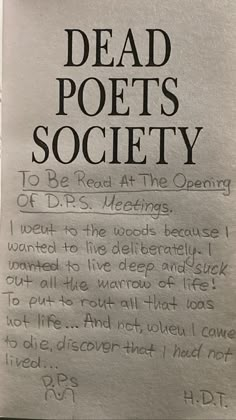 DEAD
POETS
SOCIETY
To Be Read At The Opening
Of D.P.S. Meetings.
I went to the woods because I
wanted to live deliberately. I
wanted to live deep and suck
out all the marrow of life!
To put to rout all that was
not life... And not, when I came
to die, discover that I had not
lived...
D.P.S
H.D.T.